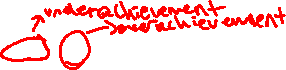 underachievement
overachievement